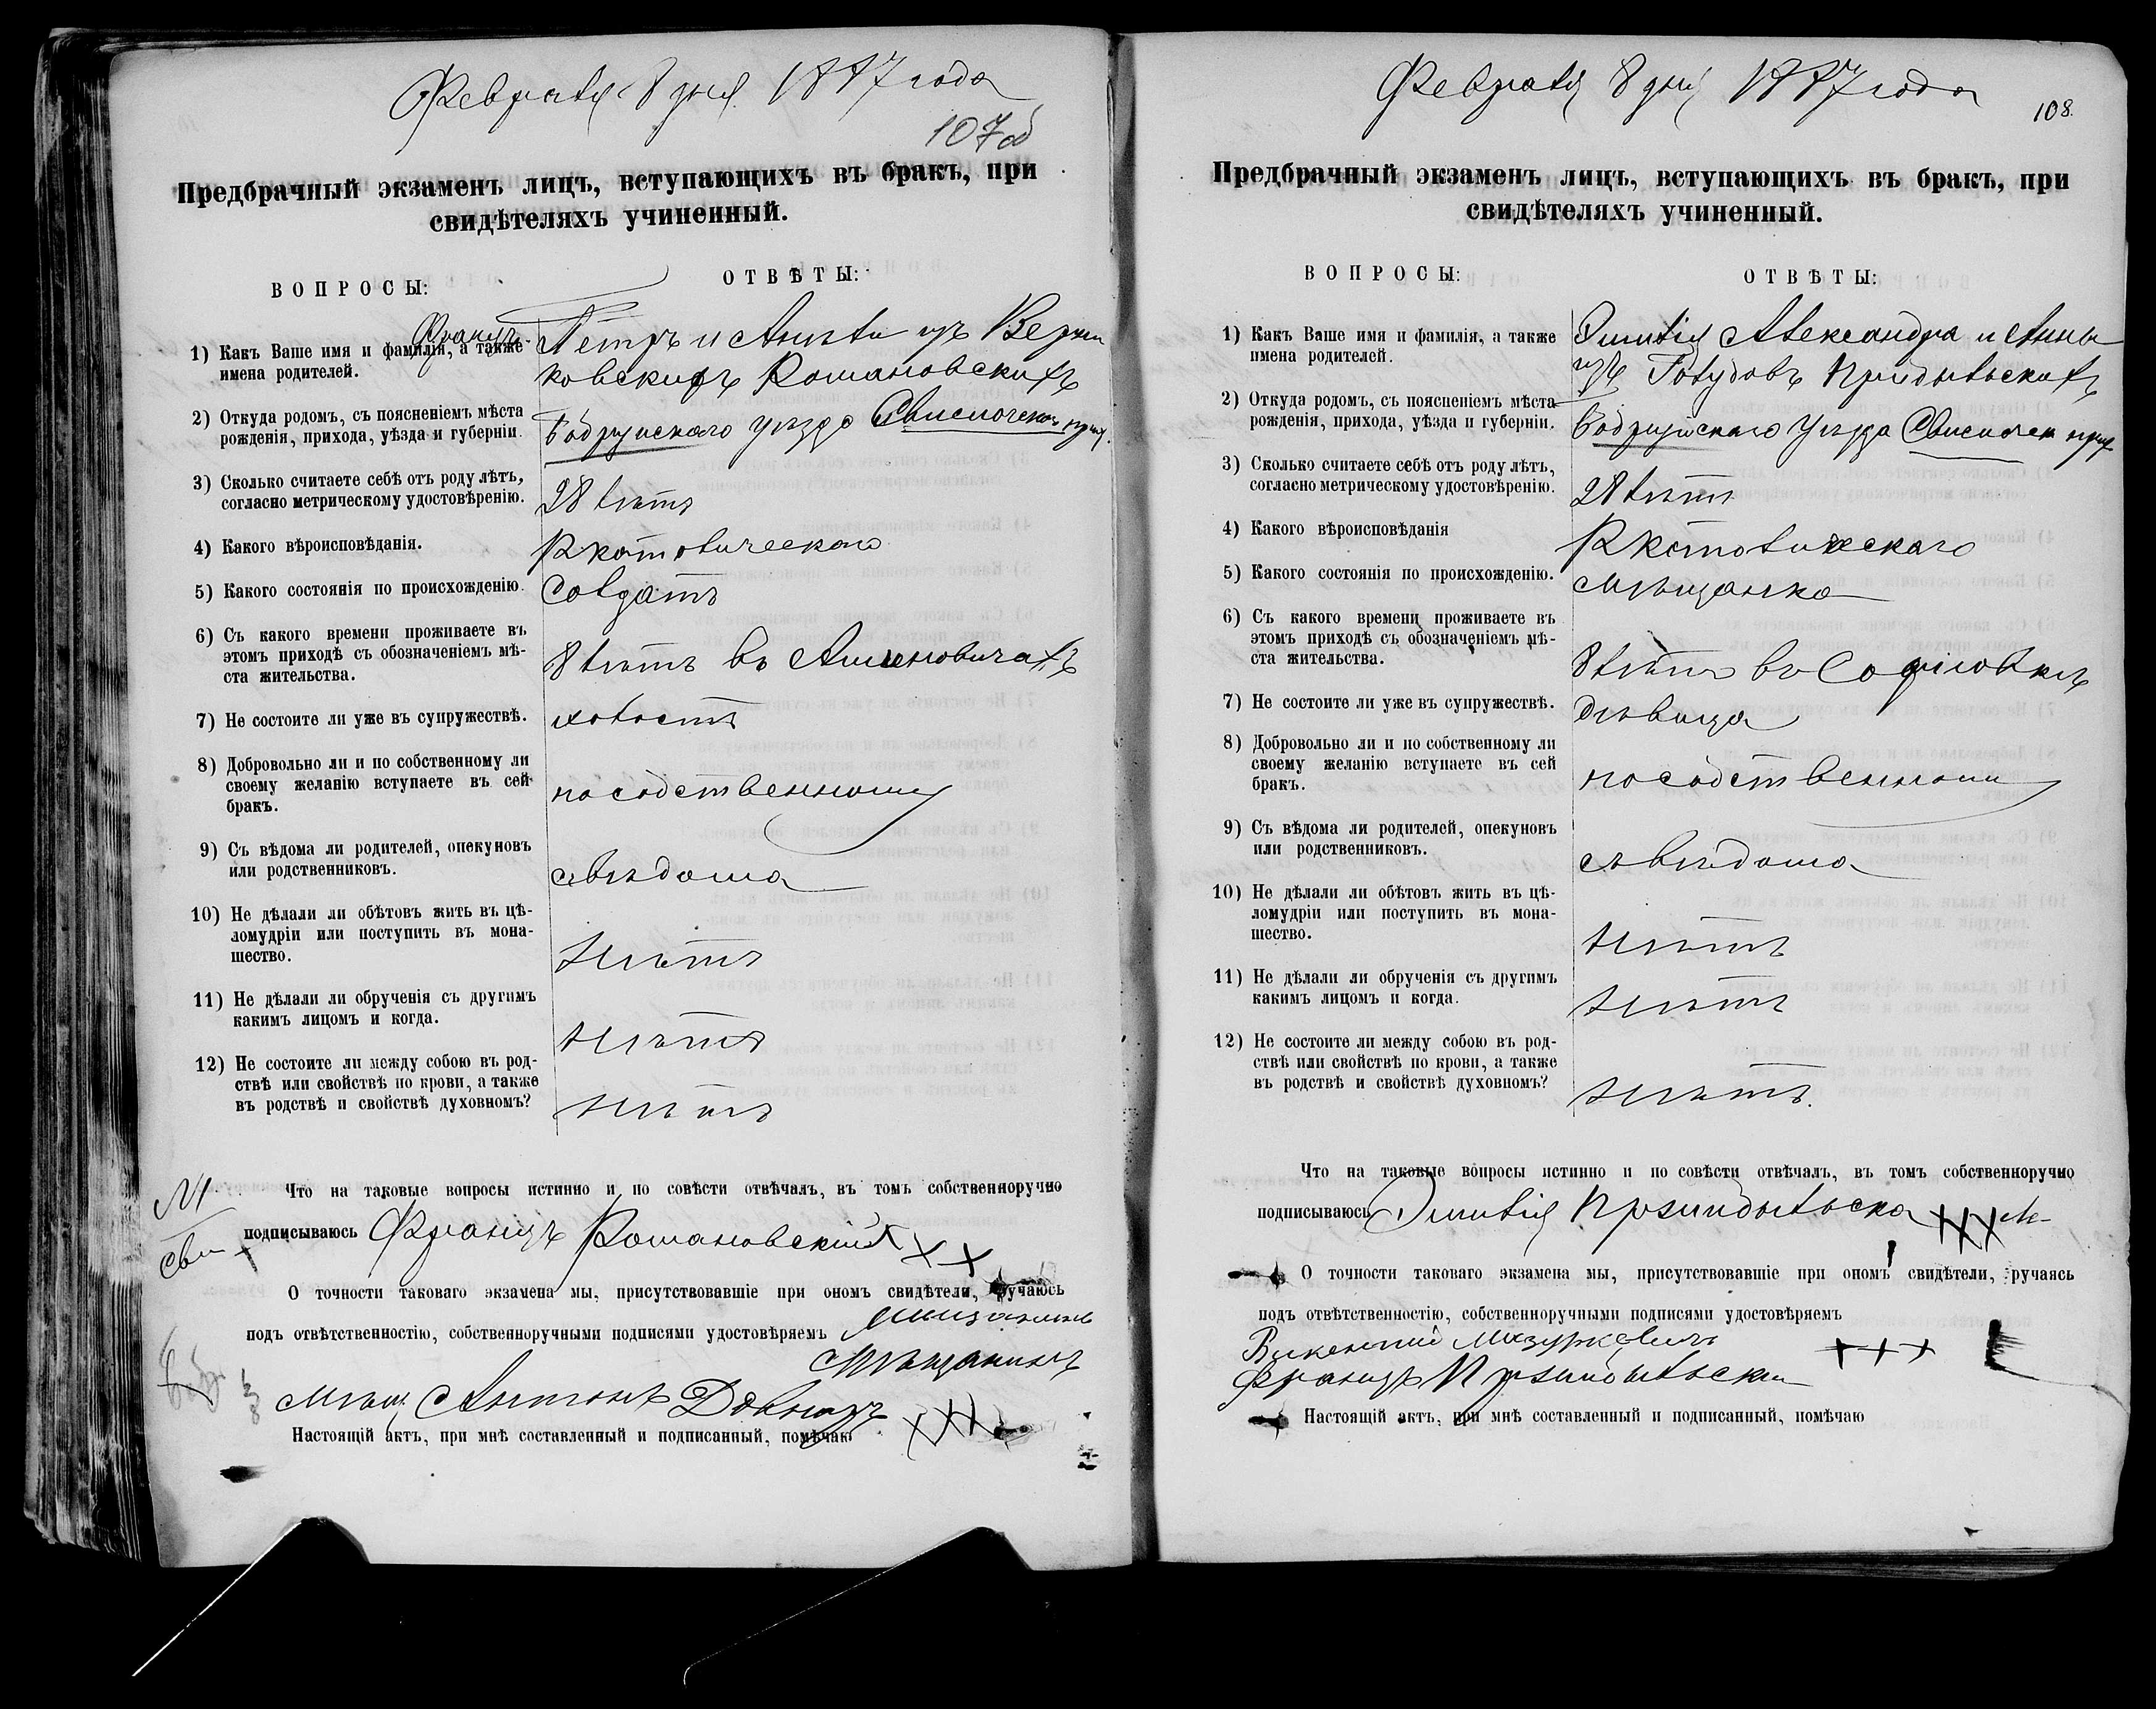 Февраля 8 дня 1887 года
107об
Предбрачный экзаменъ лицъ, вступающихъ въ бракъ, при
свидѣтеляхъ учиненный.
ВОПРОСЫ:
ОТВѢТЫ:
Францъ
1) Какъ Ваше имя и фамилія, а также
имена родителей.
Петръ и Анѣли изъ Верж
ковскихъ Романовскихъ
2) Откуда родомъ, съ поясненіемъ мѣста
рожденія, прихода, уѣзда и губерніи.
Бобруйскаго уѣзда Свислочскаго прих.
3) Сколько считаете себѣ отъ роду лѣтъ,
согласно метрическому удостовѣренію.
28 лѣтъ
4) Какого вѣроисповѣданія.
Р католическаго
5) Какого состоянія по происхожденію.
Солдатъ
6) Съ какого времени проживаете въ
этомъ приходѣ съ обозначеніемъ мѣ-
ста жительства.
8 лѣтъ въ
7) Не состоите ли уже въ супружествѣ.
холостъ
8) Добровольно ли и по собственному ли
своему желанію вступаете въ сей
бракъ.
по собственному
9) Съ вѣдома ли родителей, опекуновъ
или родственниковъ.
съ вѣдома
10) Не дѣлали ли обѣтовъ жить въ цѣ-
ломудріи или поступить въ мона-
шество.
Нѣтъ
11) Не дѣлали ли обрученія съ другимъ
какимъ лицомъ и когда.
Нѣтъ
12) Не состоите ли между собою въ род-
ствѣ или свойствѣ по крови, а также
въ родствѣ и свойствѣ духовномъ?
Нѣтъ
Что на таковые вопросы истинно и по совѣсти отвѣчалъ, въ томъ собственноручно
подписываюсь Францъ Романовскій XX
О точности таковаго экзамена мы, присутствовавшіе при ономъ свидѣтели, ручаюсь
подъ отвѣтственностію, собственноручными подписями удостовѣряемъ
Мѣщанинъ
Мѣщ Антонъ XXX
Настоящій актъ, при мнѣ составленный и подписанный, помѣчаю
Февраля 8 дня 1887 года
108.
Предбрачный экзаменъ лицъ, вступающихъ въ бракъ, при
свидѣтеляхъ учиненный.
ВОПРОСЫ:
ОТВѢТЫ:
1) Какъ Ваше имя и фамилія, а также
имена родителей.
Эмилія Александра и Анны
изъ Голубовъ
2) Откуда родомъ, съ поясненіемъ мѣста
рожденія, прихода, уѣзда и губерніи.
Бобруйскаго уѣзда Свислочск прих
3) Сколько считаете себѣ отъ роду лѣтъ,
согласно метрическому удостовѣренію.
28 лѣтъ
4) Какого вѣроисповѣданія
Р католическаго
5) Какого состоянія по происхожденію.
мѣщанка
6) Съ какого времени проживаете въ
этомъ приходѣ съ обозначеніемъ мѣ-
ста жительства.
8 лѣтъ въ Софіовкѣ
7) Не состоите ли уже въ супружествѣ.
дѣвица
8) Добровольно ли и по собственному ли
своему желанію вступаете въ сей
бракъ.
по собственному
9) Съ вѣдома ли родителей, опекуновъ
или родственниковъ.
съ вѣдома
10) Не дѣлали ли обѣтовъ жить въ цѣ-
ломудріи или поступить въ мона-
шество.
Нѣтъ
11) Не дѣлали ли обрученія съ другимъ
какимъ лицомъ и когда.
Нѣтъ
12) Не состоите ли между собою въ род-
ствѣ или свойствѣ по крови, а также
въ родствѣ и свойствѣ духовномъ?
Нѣтъ.
Что на таковые вопросы истинно и по совѣсти отвѣчалъ, въ томъ собственноручно
подписываюсь Эмилія XXX
О точности таковаго экзамена мы, присутствовавшіе при ономъ свидѣтели, ручаясь
подъ отвѣтственностію, собственноручными подписями удостовѣряемъ
Викентій Мазуркевичъ +++
Францъ
Настоящій актъ, при мнѣ составленный и подписанный, помѣчаю